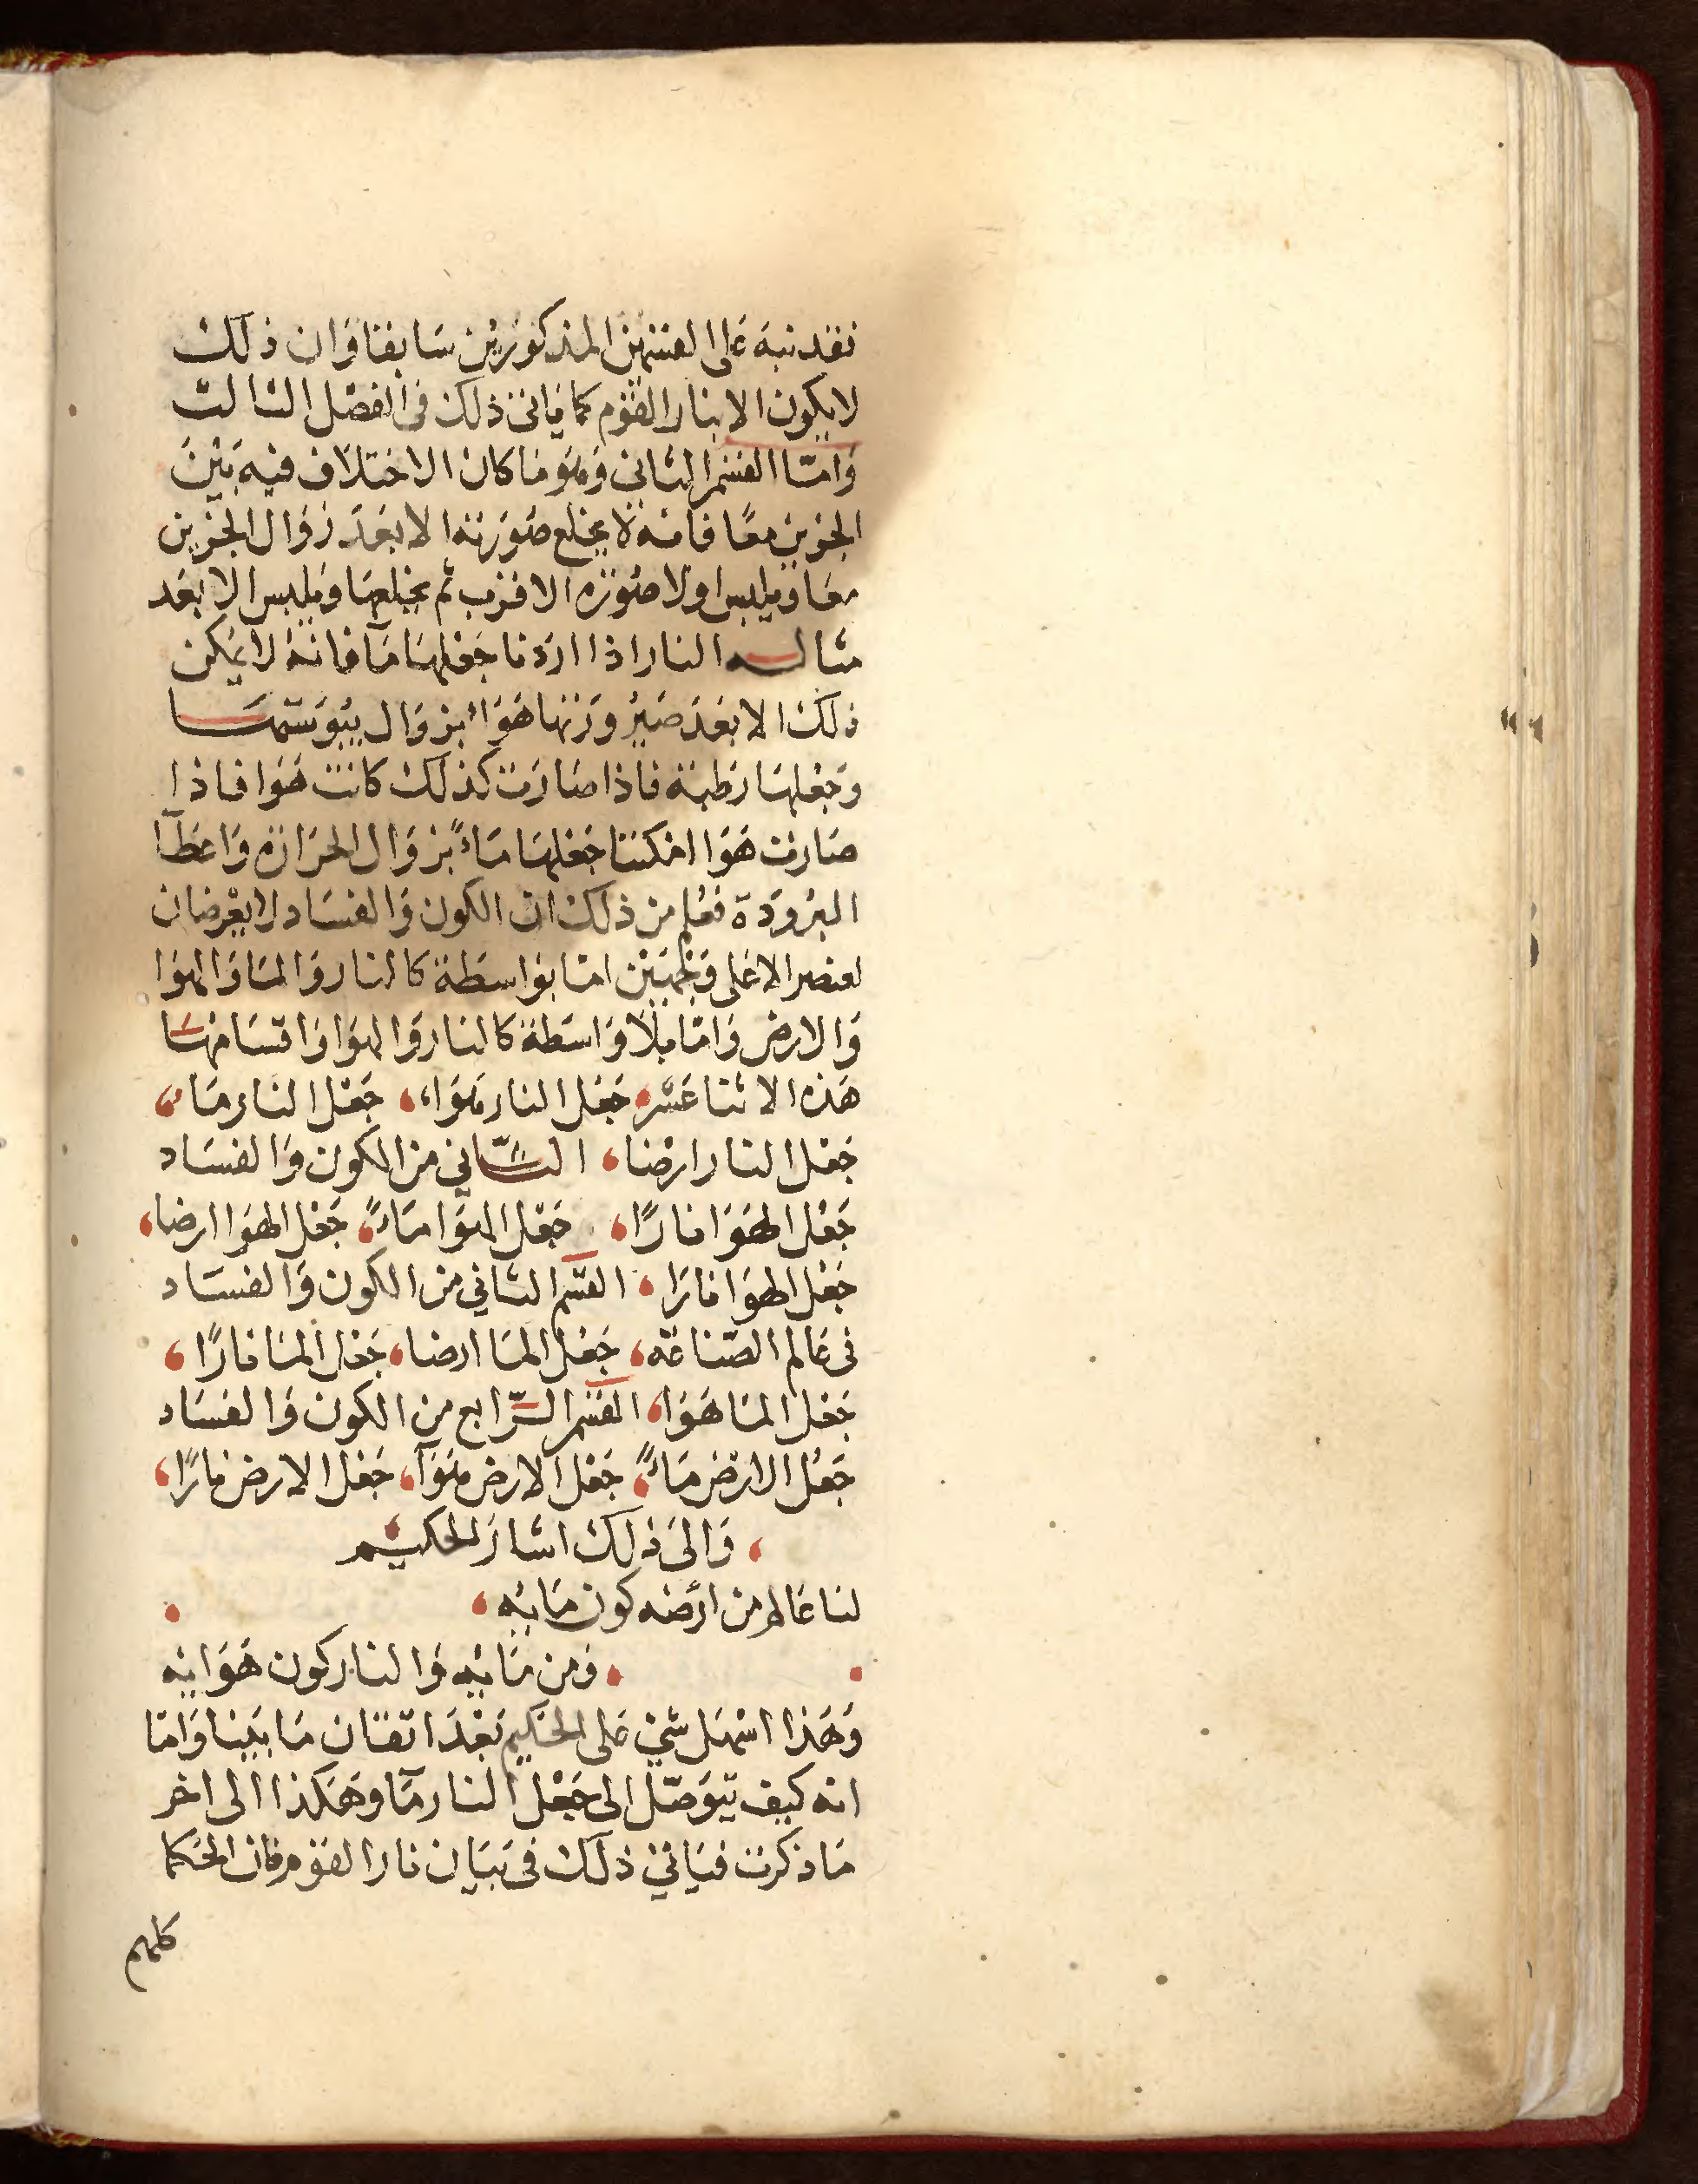 فقد نبه على القسمين المذكورين سابقا وان ذلك
لا يكون الا بنار القوم كما ياتى ذلك فى الفصل الثالث
وامّا القسم الثانى وهو ما كان الاختلاف فيه بين
الجزين معًا فانه لا يخلع صورته الا بعد زوال الجزين
معا ويلبس اولا صورة الاقرب ثم يخلعها ويلبس الابعد
مثاله النار اذا اردنا جعلها مآ فانه لا يمكن
ذلك الا بعد صيرورتها هواء بزوال يبوستها
وجعلها رطبة فاذا صارت كذلك كانت هوا فاذا
صارت هوا امكننا جعلها ماءً بزوال الحرارة واعطآ
البرودة فعلم من ذلك ان الكون والفساد لا يعرضان
لعنصر الا على وجهين امّا بواسطة كالنار والما والهوا
والارض وامّا بلا واسطة كالنار والهوا واقسامها
هذه الاثنا عشر جعل النار هواء، جعل النار ماء
جعل النار ارضا، الثّانى من الكون والفساد
جعل الهوا نارًا، جعل الهوا ماءً، جعل الهوا ارضا،
جعل الهوا نارا، القسم الثانى من الكون والفساد
فى عالم الصناعة، جعل الما ارضا، جعل الما نارًا،
جعل الما هوا، القسم الرّابع من الكون والفساد
جعل الارض ماءً، جعل الارض هوآ، جعل الارض نارًا،
، والى ذلك اشار الحكيم
لنا عالم من ارضه كون مائه ،
ومن مائه والنار كون هوائه
وهذا اسهل شئ على الحكيم بعد اتقان ما بينا وامّا
انه كيف يتوصّل الى جعل النار مآ وهكذا الى اخر
ما ذكرت فياتى ذلك فى بيان نار القوم فان الحكما
كلهم